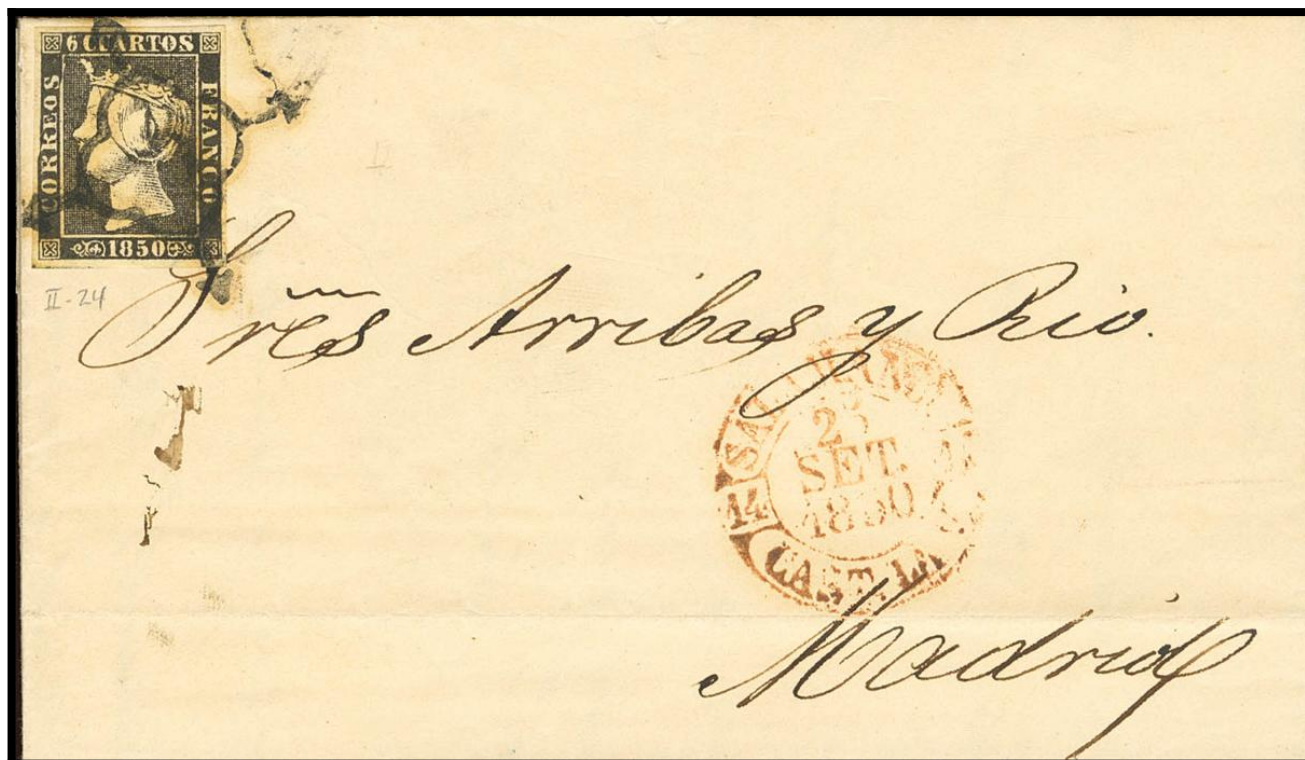 6 CUARTOS
CORREOS
FRANCO
1850
II
II-24
Sres Arribas y Rio.
SALAMANCA
25
SET.
1850
14
CAST. LA V.
Madrid